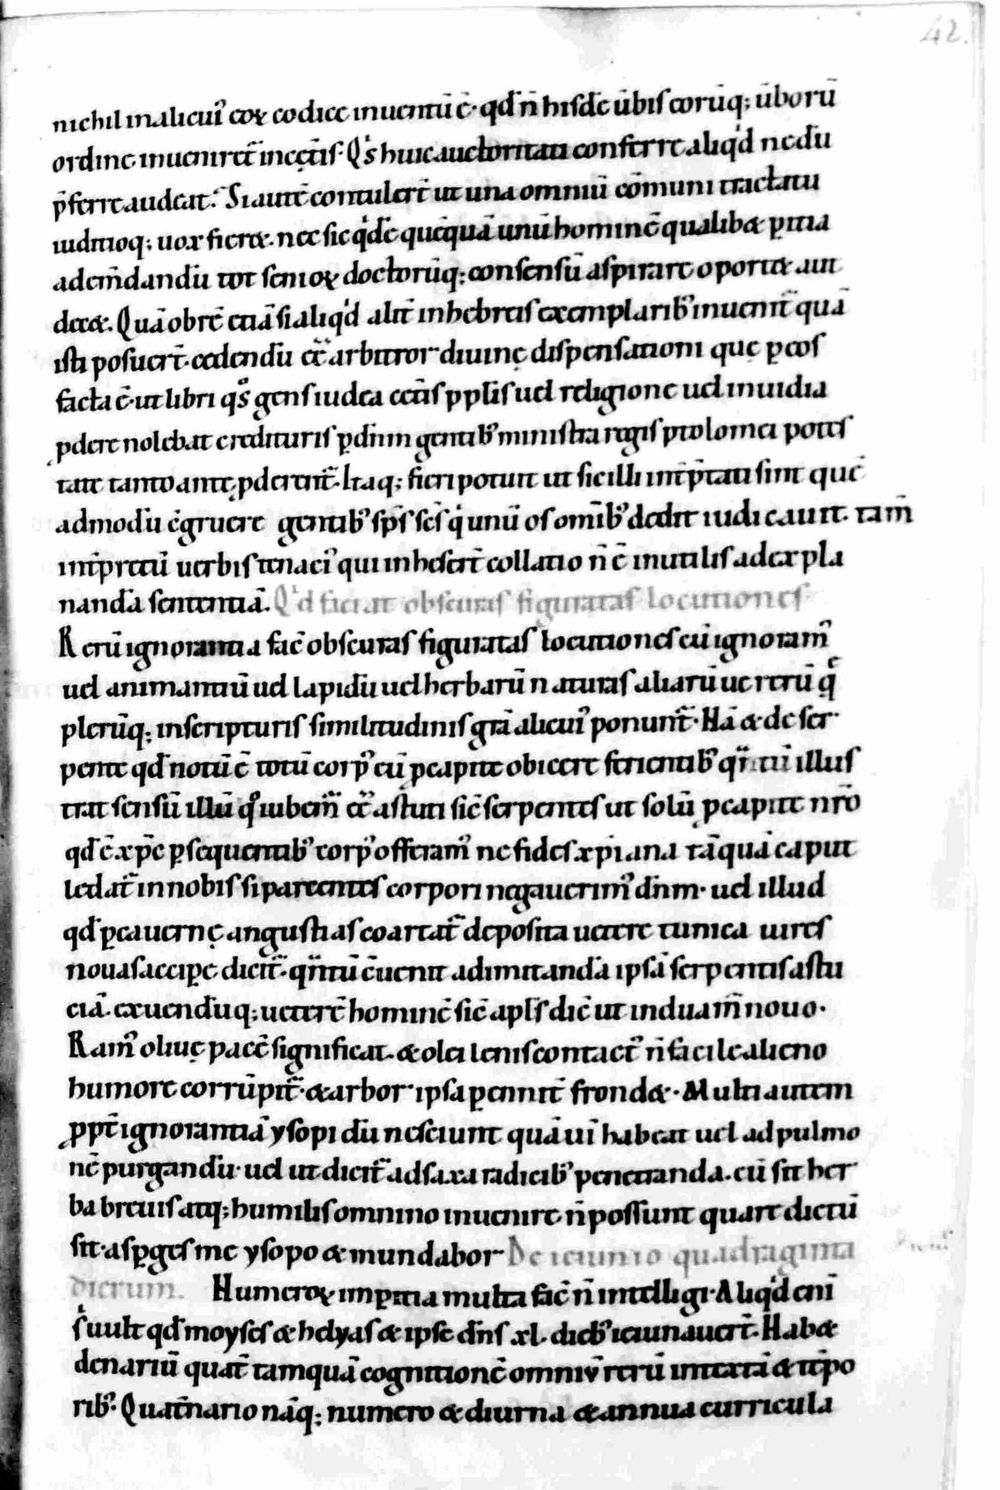 42.
nichil in alicui᷒ eoꝝ codice inuentū ē· qđ n̄ hisdē ūbis eorūq; ūborū
ordine inueniret᷑ in cęt̄is· Qͥs huic auctoritati conferre aliqͥd nedū
p̄ferre audeat? Si autē contulert̄ ut una omniū cōmuni tractatu
iudicioq; uox fieret nec sic qͥdē quēquā unū hominē qualibet peritia
ad em̄dandū tot senioꝝ doctorūq; consensū aspirare oportet aut
decet. Quā obrē etiā si aliqͥd alit̄ in hebreis exemplarib᷒ inuenit᷑ quā
isti posuert̄· cedendū eē arbitror diuinę dispensationi quę ꝑ eos
facta ē· ut libri qͦs gens iudea cet̄is ppl̄is uel religione uel inuidia
ꝓdere nolebat credituris ꝑ dn̄m gentib᷒ ministra regis ptolomei potes
tate tanto ante ꝓderent᷑. Itaq; fieri potuit ut sic illi int̄p̄tati sint quē
admodū ꝯgruere gentib᷒ sp̄s sc̄s qͥ unū os omīb᷒ dedit iudicauit. tam̄
int̄pretū uerbis tenaci᷒ qui inheser̄t collatio n̄ ē inutilis ad expla
nandā sententiā. Qͥd faciat obscuras figuratas locutiones
Rerū ignorantia fac̄ obscuras figuratas locutiones cū ignoram᷒
uel animantiū uel lapidū uel herbarū naturas aliarū ue rerū q̄
plerūq; in scripturis similitudinis grā alicui᷒ ponunt᷑· Nā & de ser
pente qđ notū ē totū corp᷒ eū ꝓ capite obicere ferientib᷒ qn̄tū illus
trat sensū illū qͦ iubem᷑ eē astuti sic̄ serpentes ut solū ꝓ capite nr̄o
qđ ē xp̄c ꝑsequentib᷒ corp᷒ offeram᷒ ne fides xp̄iana tāquā caput
ledat᷑ in nobis si parcentes corpori negauerim᷒ dn̄m· uel illud
qđ ꝑ cauernę angustias coartat᷑ deposita uetere tunica uires
nouas accipe dicit᷑· qn̄tū ꝯuenit ad imitandā ipsā serpentis astu
ciā. exuendūq; ueterē hominē sic̄ apl̄s dic̄ ut induam̄ nouo·
Ram᷒ oliuę pacē significat. & olei lenis contact᷒ n̄ facile alieno
humore corrūpit᷑· & arbor ipsa ꝑennit̄ frondet· Multi autem
ꝓpt̄ ignorantiā ysopi dū nesciunt quā uī habeat uel ad pulmo
nē purgandū· uel ut dicit᷑ ad saxa radicib᷒ penetranda. cū sit her
ba breuis atq; humilis omnino inuenire n̄ possunt quare dictū
sit· asꝑges me ysopo & mundabor De ieiunio quadraginta
dierum. Numeroꝝ imperitia multa fac̄ n̄ intelligi· Aliqͥd enī
sͥ uult qđ moyses & helyas & ipse dn̄s xl. dieb᷒ ieiunauert̄. Habet
denariū quat̄ tamquā cognitionē omniū rerū intextā & tēpo
rib᷒. Quat̄nario nāq; numero & diurna & annua curricula